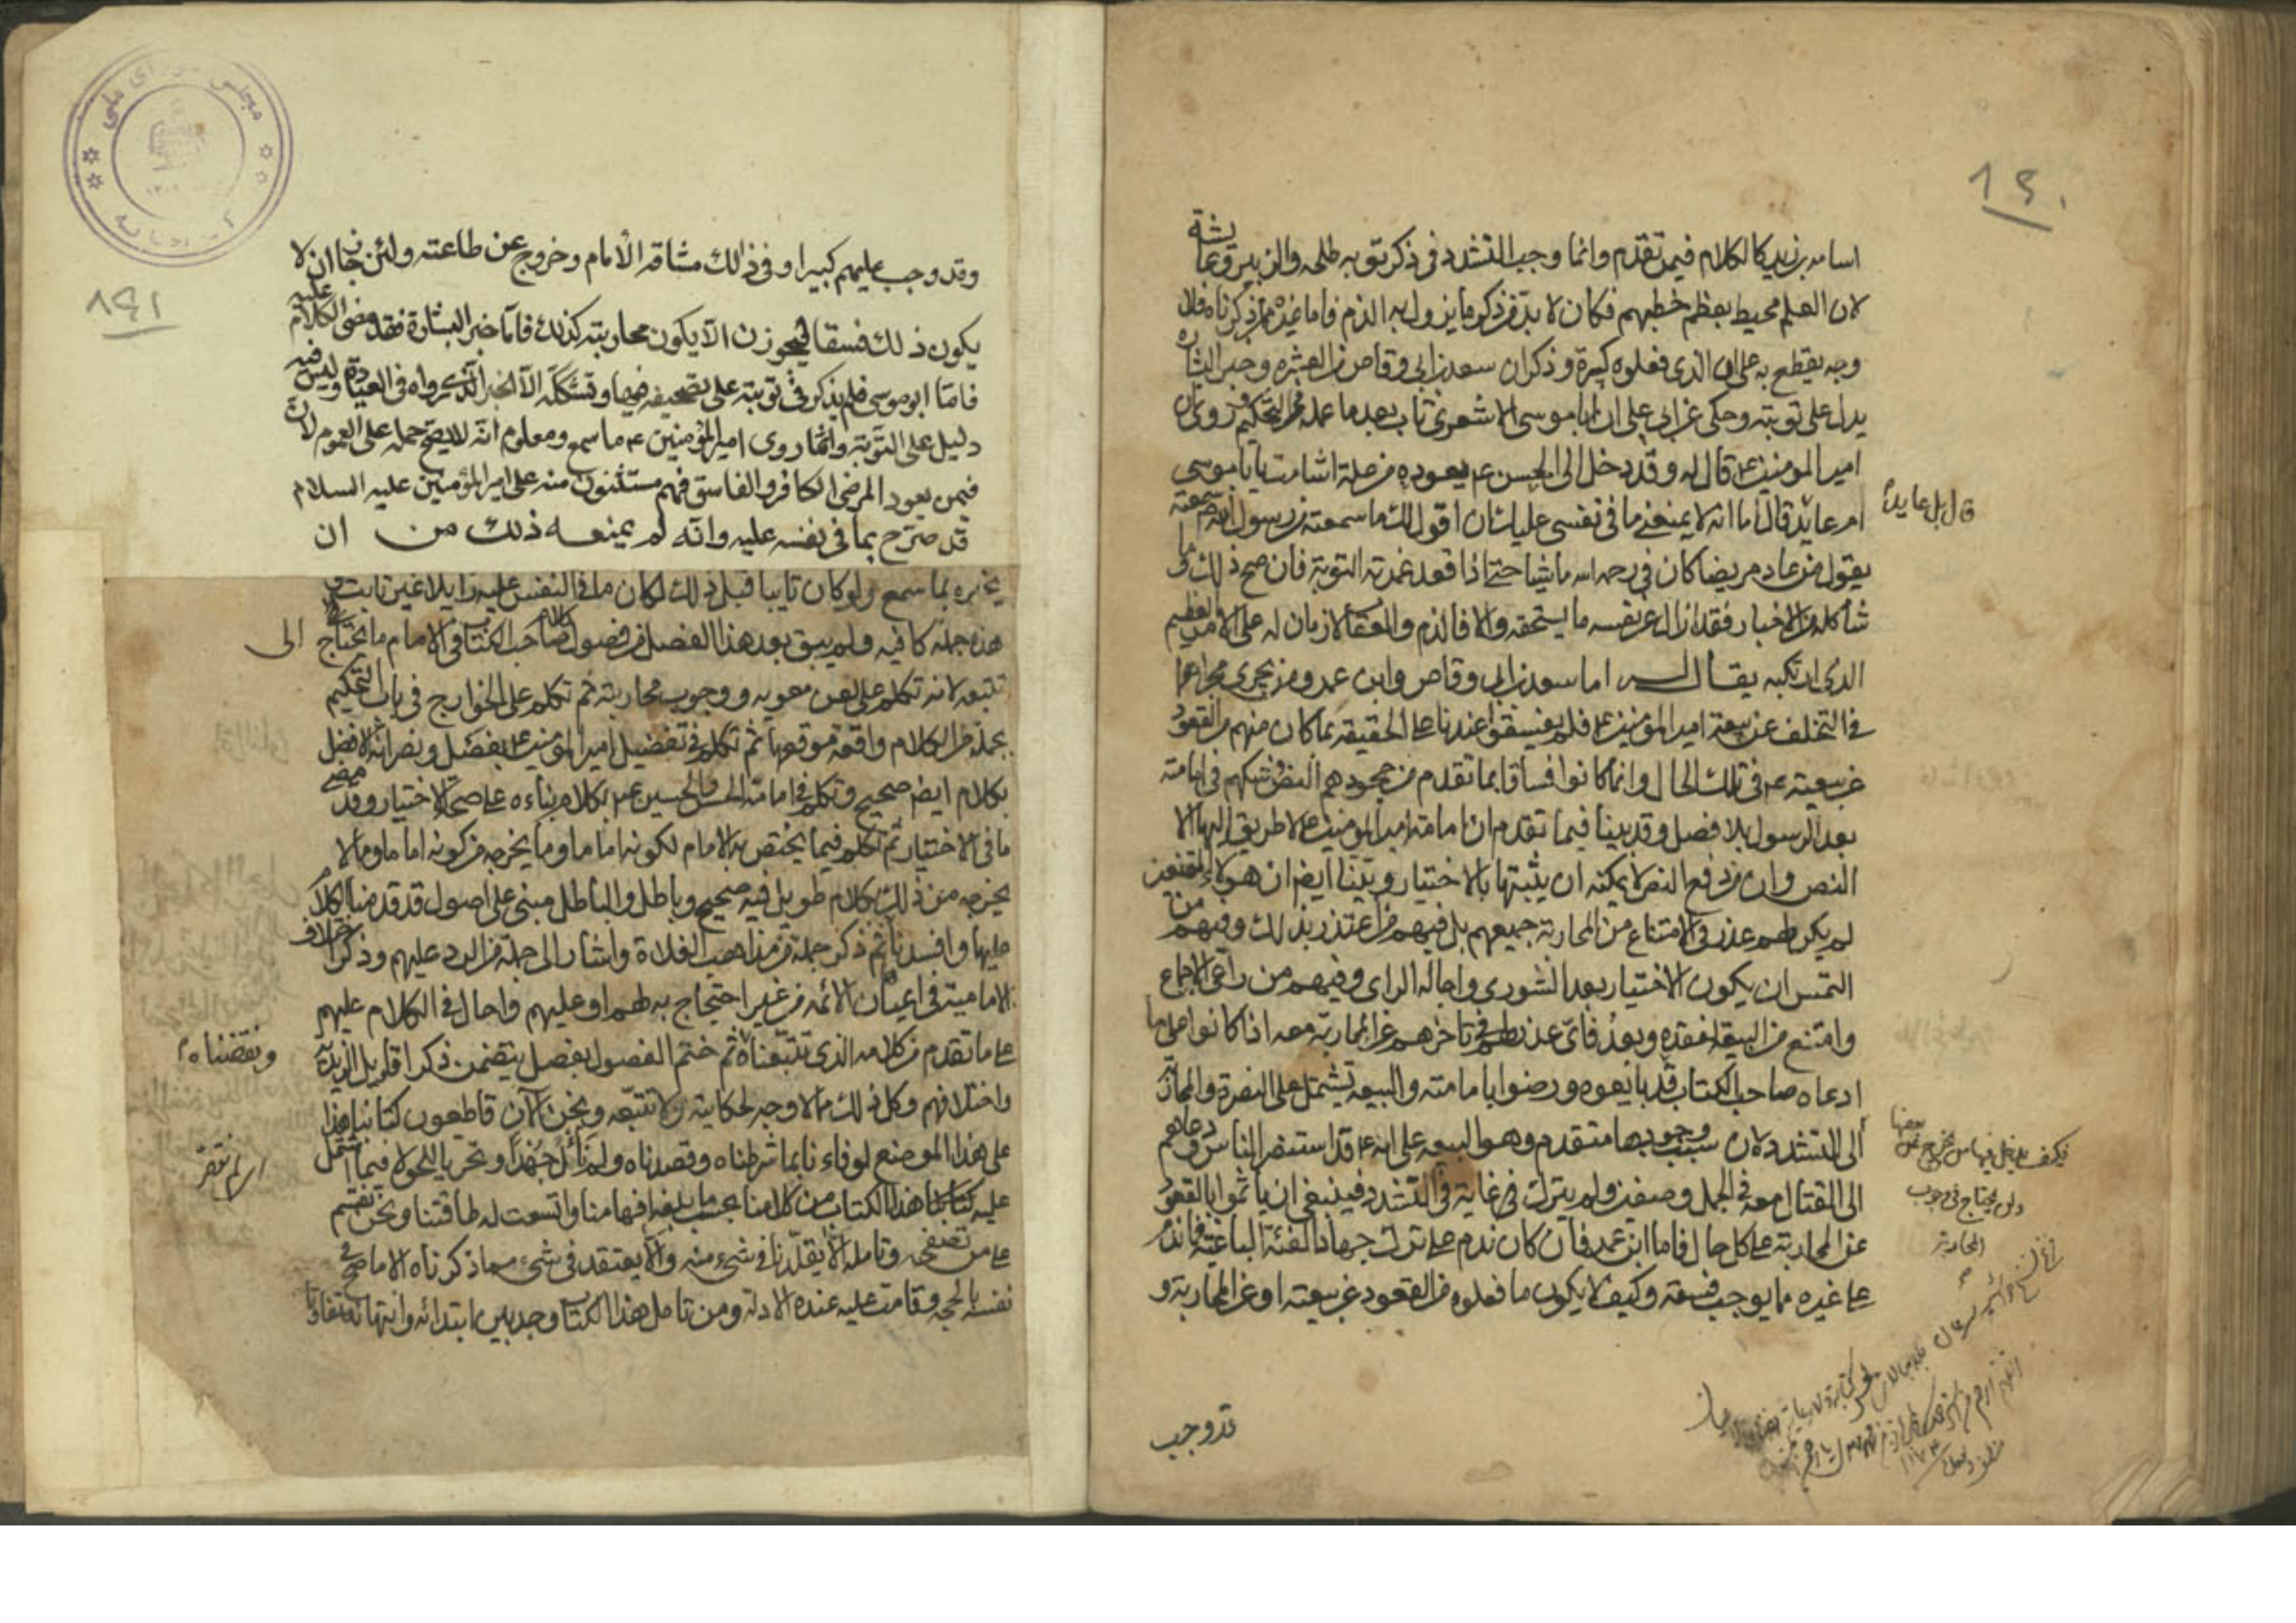 اسامه بن زيد كالكلام فيمن تقدم وانما وجب التشدد في ذكر توبه طلحه والزبير وعايشة
لان العلم محيط بعظم خطيهم فكان لا بد من ذكر ما يزول به الذم فاما غيرهم ممن ذكرناه فلا
وجه يقطع به على ان الذى فعلوه كبيرة وذكر ان سعد بن ابي وقاص من العشره وخبر البشاره
يدل على توبته وحكى عن ابي على ان ابا موسى الاشعرى تاب بعد ما عمله في امر التحكيم وروى ان
امير المومنين ع قال له وقد دخل الى الحسن ع يعوده من علة اشامت يا با موسى
ام عايد قال اما انه لا يمنعنى ما في نفسى عليك ان اقول لك ما سمعته من رسول الله سمعته
قال بل عايدا
يقول من عاد مريضا كان في رحمه الله ماشيا حتى اذا قعد غمرته التوبة فان صح ذلك وما
شاكله من الاخبار فقد ازال عن نفسه ما يستحقه والا فالذم والعقاب لازمان له على الامر العظيم
الذى ارتكبه يقال له اما سعد بن ابي وقاص وابن عمر ومن يجرى مجراهما
في التخلف عن بيعة امير المؤمنين ع فلم يفسقوا عندنا على الحقيقه بما كان منهم من القعود
عن بيعته ع في تلك الحال وانما كانوا فساقا بما تقدم من جحودهم النص وشكهم في امامته
بعد الرسول بلا فصل وقد بينا فيما تقدم ان امامة امير المومنين ع لا طريق اليها الا
النص وان من دفع النص لا يمكنه ان يثبتها بالاختيار وبينا ايضا ان هولاء الممتنعين
لم يكن لهم عذر في الامتناع من المحاربة جميعهم بل فيهم من اعتذر بذلك وفيهم من
التمس ان يكون الاختيار بعد الشورى واجالة الراى وفيهم من راعى الاجماع
وامتنع من البيعة لفقده وبعد فاى عذر لهم في تاخرهم عن المحاربة معه اذا كانوا على ما
ادعاه صاحب الكتاب قد بايعوه ورضوا بامامته والبيعه تشتمل على النصرة والمحاربة
الى التشدد لان سبب وجوبها متقدم وهو البيعه على انه ع قد استنفر الناس ودعاهم
فكيف
يحتاج في وجوب
المحاربة
الى القتال معه في الجمل وصفين ولم يترك غاية في التشدد فينبغى ان ياثموا بالقعود
عن المحاربة على كل حال فاما ابن عمر فان كان ندم على ترك جهاد الفئة الباغية فما ندم
على غيره مما يوجب فسقه وكيف لا يكون ما فعلوه من القعود عن بيعته او عن المحاربة و
قد وجب
٨٩١
وقد وجب عليهم كبيرا وفى ذلك مشاقه الامام وخروج عن طاعته ولئن جاز ان لا
يكون ذلك فسقا فيجوزن الا يكون محاربته كذلك فاما خبر البشارة فقد مضى الكلام عليه
فاما ابو موسى فلم يذكر في توبته على تصحيفه فيها وتشكله الا الخبر الذى رواه في العيادة وليس فيه
دليل على التوبة وانما روى امير المؤمنين ع ما سمع ومعلوم انه لا يصح حمله على العموم لان
فيمن يعود المرضى الكافر والفاسق فهم مستثنون منه على امير المؤمنين عليه السلام
قد صرح بما فى نفسه عليه وانه لم يمنعه ذلك من ان
يخبره بما سمع ولو كان تايبا قبل ذلك لكان ما فى النفس عليه زايلا غير ثابت وفى
هذه جمله كافيه ولم يبق بعد هذا الفصل من فصول كلام صاحب الكتاب في الامام ما يحتاج الى
تتبعه لانه تكلم على لعن معويه ووجوب محاربته ثم تكلم على الخوارج في باب التحكيم
بجملة من الكلام واقعه موقعها ثم تكلم في تفضيل امير المومنين ع بفصل ونصر انه الافضل
بكلام ايضا صحيح وتكلم في امامة الحسن والحسين ع بكلام بناءه على صحة الاختيار وقد مضى
ما في الاختيار ثم تكلم فيما يختص به الامام لكونه اماما وما يخرجه من كونه اماما وما لا
يخرجه من ذلك بكلام طويل فيه صحيح وباطل والباطل مبنى على اصول قد قدمنا الكلام
عليها وافسدناها ثم ذكر جملة من مذاهب الغلاة واشار الى جملة من الرد عليهم وذكر اختلاف
الامامية في اعيان الائمه من غير احتجاج به لهم او عليهم واحال في الكلام عليهم
على ما تقدم من كلامه الذى تتبعناه ثم ختم الفصول بفصل يتضمن ذكر اقاويل الزيدية
ونقضناه
واختلافهم وكل ذلك مما لا وجه لحكايته ولا تتبعه ونحن الان قاطعون كتابنا هذا
على هذا الموضع لوفاءنا بما شرطناه وقصدناه ولم نأل جهدا وتحريا للحق فيما اشتمل
عليه كتابنا هذا الكتاب من كلامنا بحسب ما بلغه افهامنا واتسعت له طاقتنا ونحن نقسم
على من تصفحه وتامله الا يقلدنا في شىء منه والا يعتقد في شىء مما ذكرناه الا ما صح في
نفسه بالحجه وقامت عليه عنده الادلة ومن تامل هذا الكتاب وجد بين ابتدائه وانتهائه تفاوتا